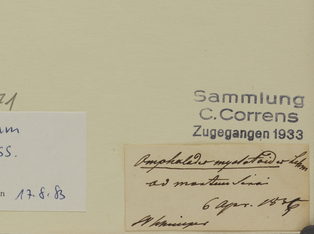 71
Sammlung
C. Correns
Zugegangen 1933
um
ss.
n 17.8.83
Omphalodes myosotoides Lehm
ad montem Sinai
6 Apr. 1835
W Schimper